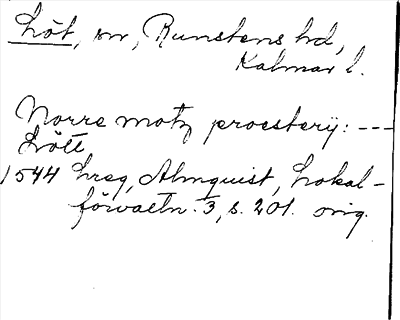 Löt, sn, Runstens hd,
Kalmar l.
Norre motz proestery: ---
Lött
1544 Lreg, Almquist, Lokal-
förvaltn. 3, s. 201. orig.